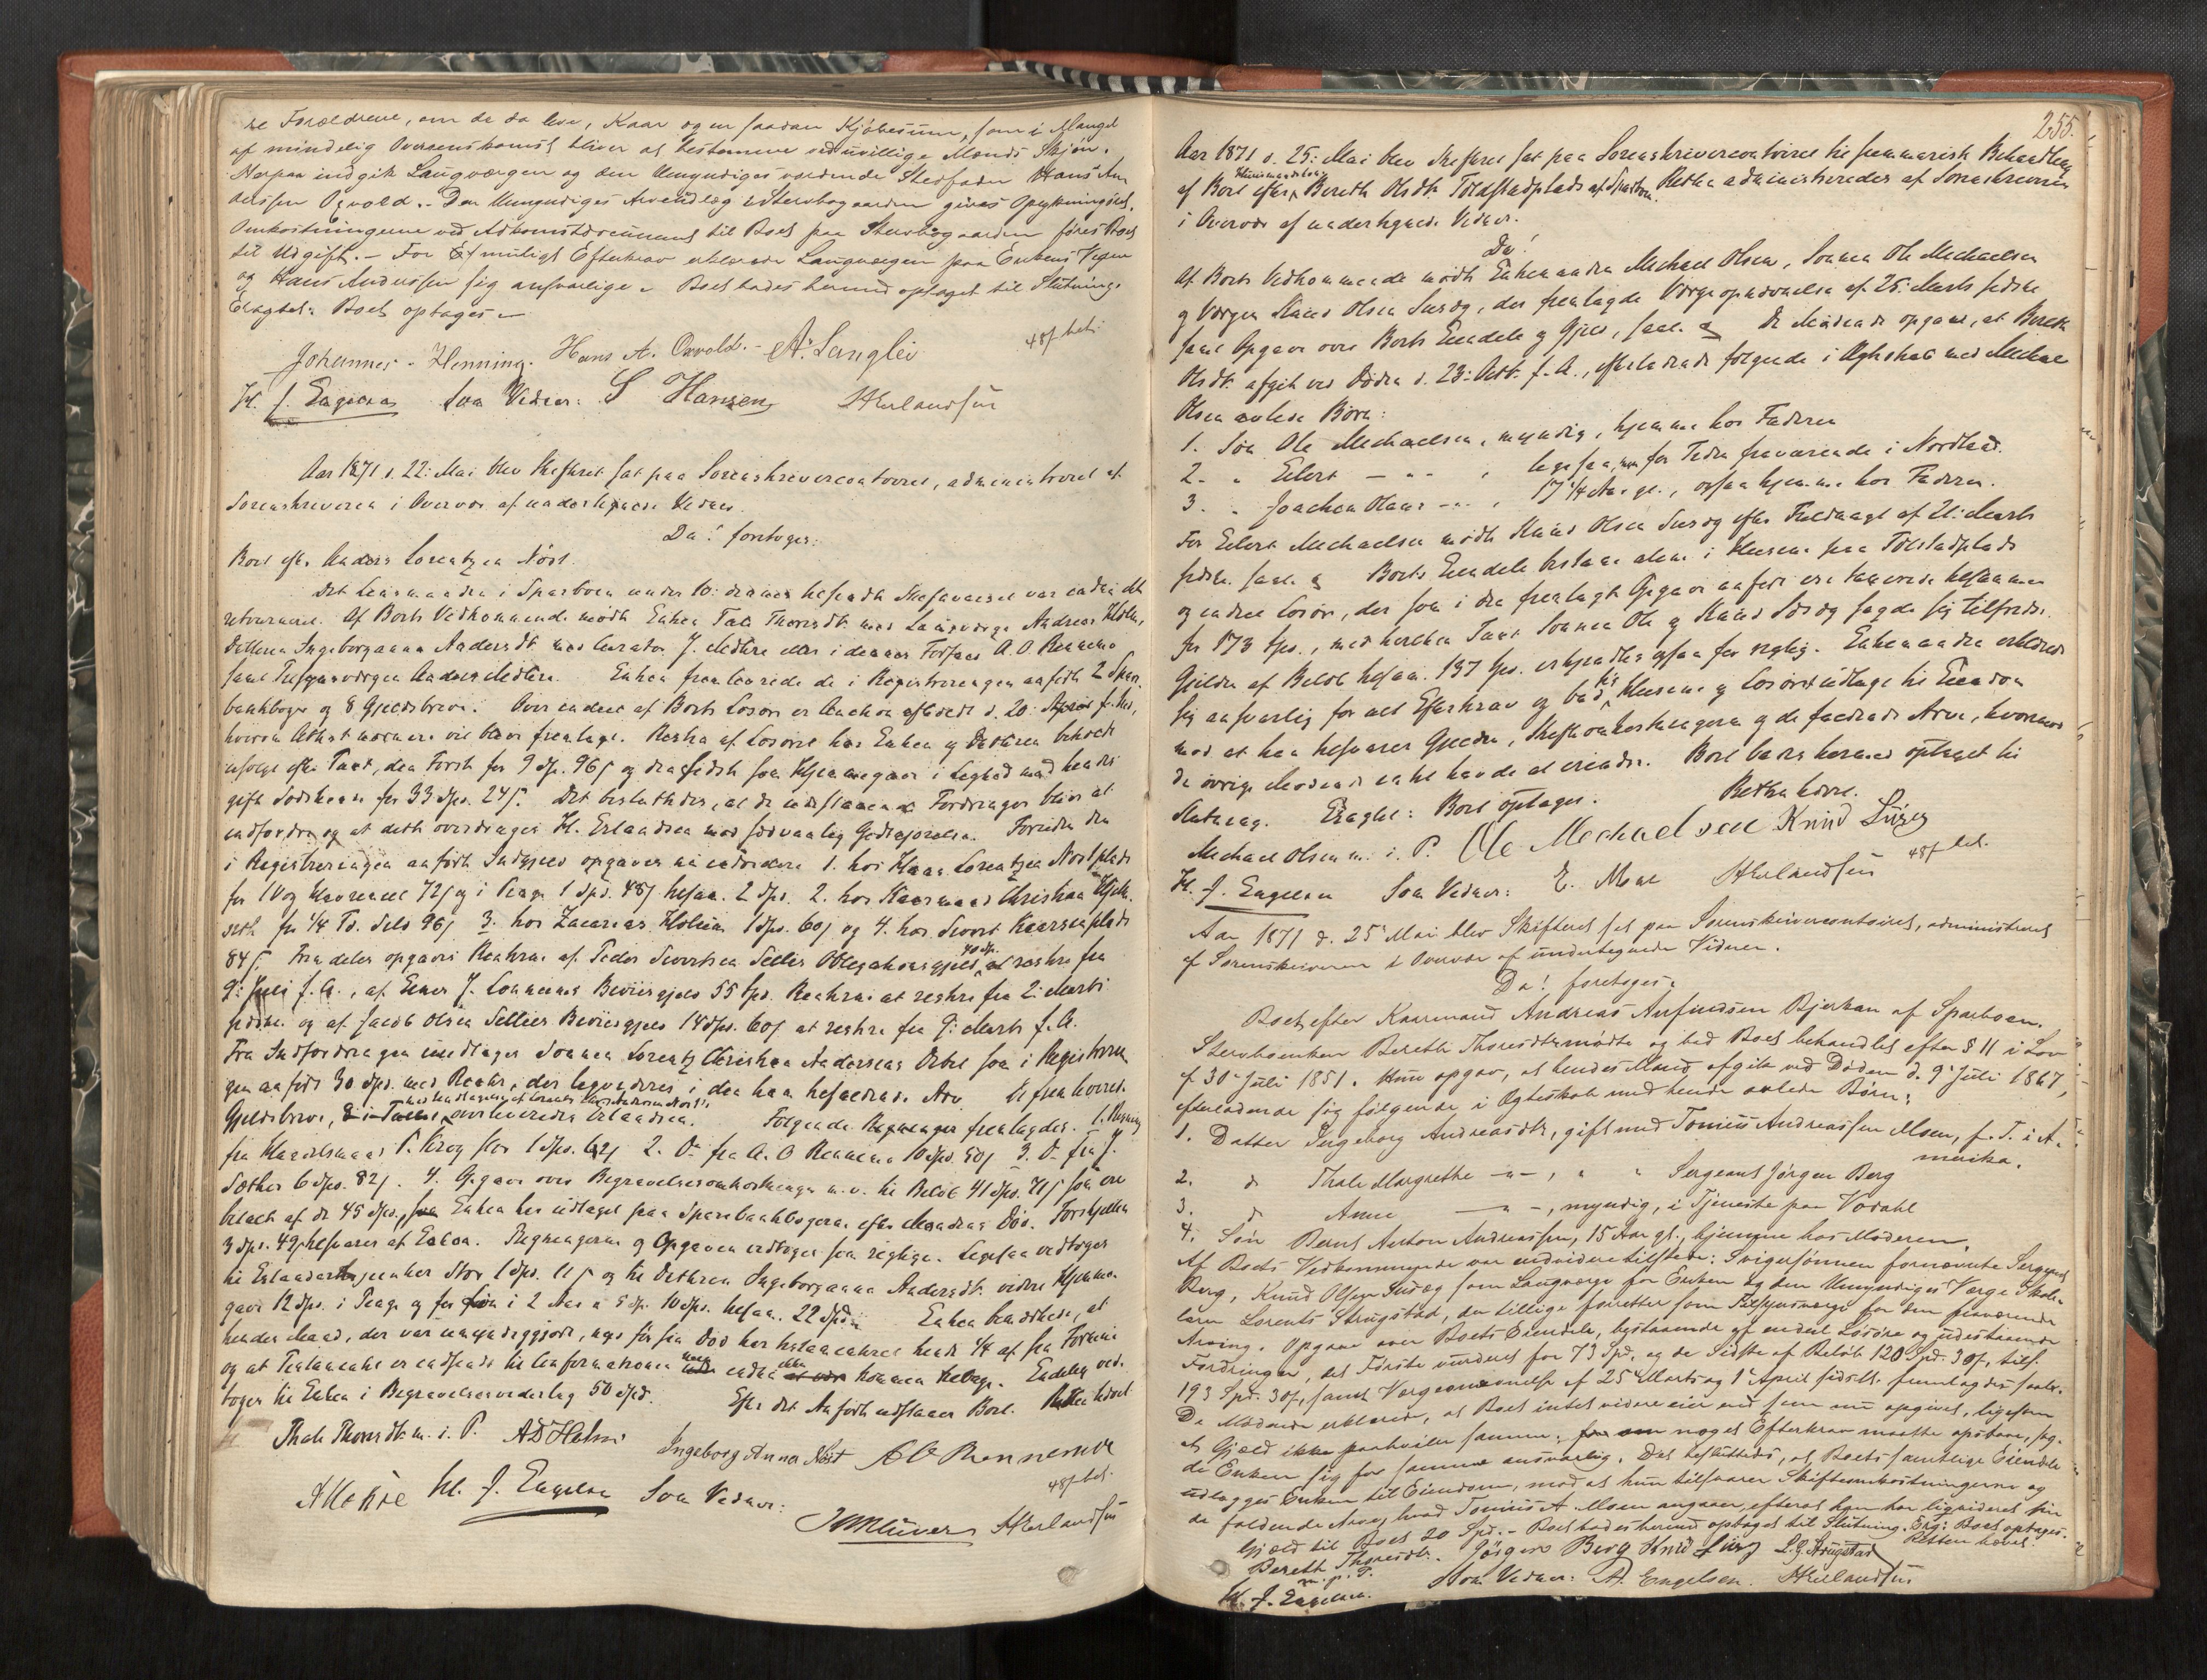 re Forældrene, om de da leve, Kaar og en saadan Kjöbesum, som i Mangel
af mindelig Overenskomst bliver at bestemme ved uvillige Mænds Skjön.
Herpaa indgik Laugværgen og den Umyndiges værende Stedfader Hans An
derssen Oxvold. - Den Umyndiges Arvendlæg i Stervbogaarden gives
Omkostningerne ved Adkomstdocument til Boet paa Stervbogaarden föres Boet
til Udgift. - For muligt Efterkrav erklærede Laugværgen paa Enkens Vegne
og Hans Anderssen sig ansvarlige. Boet bades hermed optaget til Slutning.
Eragtet: Boet optages.
48 s bet.
Johannes Henning. Hans A. Oxvold. - A. Langlei
H. J. Engelsen Som Vidner: S Hansen HErlandsen
Aar 1871 d. 22. Mai blev Skifteret sat paa Sorenskrivercontoiret, administreret af
Sorenskriveren i Overvær af undertegnede Vidner.
Da! foretoges:
Boet eft. Anders Lorentzen Nöst.
Det Lensmanden i Sparboen under 10. dennes tilsendte Skifteavertissement var endnu ikke
returneret. Af Boets Vedkommende mödte Enken Tale Thoresdt. med Laugværge Andreas Holm,
Datteren Ingeborganna Andersdt. med Curator J. eller i dennes Forfald A. O. Rennemo
samt Tilsynsværgen Anders. Enken fremleverede de i Registreringen anförte 2 Spare
bankböger og 8 Gjeldsbreve. Over endeel af Boets Lösöre er Auction afholdt d. 20. April f. A.,
hvorom Attest nærmere vil blive fremlagt. Resten af Lösöret har Enken og Datteren beholdt
ifölge efter Taxt, den Förste for 9 Spd. 96 s og den Sidste som Hjemmegave i Lighed med hendes
gifte Södskende for 33 Spd. 24 s. Det besluttedes, at de udestaaende Fordringer blive at
indfordre, og at dette overdrages H. Erlandsen mod sædvanlig Godtgjörelse. Foruden den
i Registreringen anförte Indgjeld opgaves nu endvidere 1. hos Hans Lorentzen Nöstplads
for 1 Vog Havremeel 72 s og i Penge 1 Spd. 48 s tilsam. 2 Spd. 2. hos Kaarmand Christian Hjelm
seth for 1/4 Td. Sild 96 s 3. hos Zacarias Holmen 1 Spd. 60 s og 4. hos Sivert Kaarseplads
84 s. Fremdeles opgaves Renterne af Peder Sivertsen Selliës Obligationsgjeld 40 Spd. at restere fra
9. Juli f. A., af Einer J. Lonnemos Beviisgjeld 55 Spd. Renterne at restere fra 2. Marts
sidstl. og af Jacob Olsen Selliës Beviisgjeld 14 Spd. 60 s at restere fra 9. Marts f. A.
Fra Indfordringen undtages Sönnen Lorentz Christian Andersens Debet som i Registrerin
gen anfört 30 Spd. med Renter, der liqvideres i den ham tilfaldende Arv. De fremleverede
Gjeldsbreve, overleveredes Erlandsen. Fölgende Regninger fremlagdes. 1. Regning
fra Handelsmand P. Krog stor 1 Spd. 62 s 2. Do fra A. O Rennemo 10 Spd. 50 s 3. Do fra J.
Sæther 6 Spd. 82 s. 4. Opgave over Begravelsesomkostninger m. v. til Belöb 41 Spd. 71 s som ere
betalt af de 45 Spd., Enken har udtaget paa Sparebankbögerne efter Mandens Död. Forskjellen
3 Spd. 49 s tilsvares af Enken. Regningerne og Opgaven vedtoges som rigtige. Ligesaa vedtoges
til Erlandsen stor 1 Spd. 11 s og til Datteren Ingeborganna Andersdt. videre Hjemme
gave 12 Spd. i Penge og for Lön i 2 Aar a 5 Spd. 10 Spd. tilsam. 22 Spd. Enken bemærkede, at
hendes Mand, der var umyndiggjort, nys för sin Död har testamenteret hende 1/4 af sin Formue
og at Testamentet er indsendt til Confirmation men endnu ikke kommet tilbage. Endelig ved
toges til Enken i Begravelsesvederlag 50 Spd. Efter det Anförte udstaaer Boet. Retten hævet
Thale Thoresdt. m. i. P. AD Holm Ingeborg Anna Nöst AO Rennemo
48 s bet.
H. J. Engelsen Som Vidner: HErlandsen
255.
Aar 1871 d. 25. Mai blev Skifteret sat paa Sorenskrivercontoiret til summarisk Behandling
af Boet efter Huusmandskone Bereth Olsdt. Tolstadplads af Sparboen. Retten administreredes af Sorenskriveren
i Overvær af undertegnede Vidner.
Da!
Af Boets Vedkommende mödte Enkemanden Michael Olsen, Sönnen Ole Michaelsen
og Værgen Knud Olsen Susæg, der fremlagde Værgeopnævnelse af 25. Marts sidstl.
samt Opgave over Boets Eiendele og Gjeld, saal. De Mödende opgave, at Bereth
Olsdt. afgik ved Döden d. 23. Octb. f. A., efterladende fölgende i Ægteskab med Michael
Olsen avlede Börn:
1. Sön Ole Michaelsen, myndig, hjemme hos Faderen
2. " Eilert — " — , ligesaa, men for Tiden fraværende i Nordland.
3. " Joachen Olaus — " — , 17 1/4 Aar gl., ogsaa hjemme hos Faderen.
For Eilert Michaelsen mödte Knud Olsen Susæg efter Fuldmagt af 21. Marts
sidstl. saal. Boets Eiendele bestaae alene i Husene paa Tolstadplads
og endeel Lösöre, der som i den fremlagte Opgave anfört ere taxerede tilsammen
for 173 Spd., med hvilken Taxt Sönnen Ole og Knud Susæg sagde sig tilfreds.
Gjelden af Belöb tilsam. 137 Spd. erkjendtes ogsaa for rigtig. Enkemanden erklærede
sig ansvarlig for alt Efterkrav og bad sig Husene og Lösöret udlagt til Eiendom
mod at han tilsvarer Gjelden, Skifteomkostningerne og de faldende Arve, hvorimod
de övrige Mödende intet havde at erindre. Boet bades hermed optaget til
Slutning. Eragtet: Boet optages. Retten hævet.
Michael Olsen m. i. P. Ole Mechaelsen Knud Süzeg
48 s bet.
H. J. Engelsen Som Vidner: E. Moe HErlandsen
Aar 1871 d. 25 Mai blev Skifteret sat paa Sorenskrivercontoiret, administreret
af Sorenskriveren i Overvær af undertegnede Vidner.
Da! foretoges:
Boet efter Kaarmand Andreas Arfindssen Bjerkan af Sparboen.
Stervboenken Bereth Thoresdtr mödte og bad Boet behandlet efter § 11 i Lov
af 30 Juli 1851. Hun opgav, at hendes Mand afgik ved Döden d. 9 Juli 1867,
efterladende sig fölgende i Ægteskab med hende avlede Börn:
1. Datter Ingeborg Andreasdtr, gift med Tomius Andreassen Moen, f. T. i A-
merika.
2. do Thale Margrethe — " — , " " Sergeant Jörgen Berg
3. do Anne — " — , myndig, i Tjeneste paa Vodahl
4. Sön Bernt Anton Andreassen, 15 Aar gl., hjemme hos Moderen.
Af Boets Vedkommende var endvidere tilstede: Svigersönnen fornævnte Sergeant
Berg, Knud Olsen Susæg som Laugværge for Enken og den Umyndiges Værge Skole-
lærer Lorents Strugstad, der tillige forretter som Tilsynsværge for den fraværende
Arving. Opgave over Boets Eiendele, bestaaende af endeel Lösöre og udestaaende
Fordringer, det Förste vurderet for 73 Spd. og de Sidste af Belöb 120 Spd. 30 s, tils.
193 Spd. 30 s, samt Værgeopnævnelse af 25 Marts og 1 April sidstl. fremlagdes saal.
De Mödende erklærede, at Boet intet videre eier end som nu opgivet, ligesom
at Gjæld ikke paahviler samme; noget Efterkrav maatte opstaae, sag-
de Enken sig for samme ansvarlig. Det besluttedes, at Boets samtlige Eiendele
udlægges Enken til Eiendom, mod at hun tilsvarer Skifteomkostningerne og
de faldende Arve, hvad Tomius A. Moen angaaer, efterat han har liqvideret sin
Gjæld til Boet 20 Spd. - Boet bades hermed optaget til Slutning. Erg: Boet optages.
Retten hævet.
Bereth Thoresdtr. m. p. P. Jörgen Berg Knud Süzeg L. G. Strugstad
H. J. Engelsen. Som Vidner: A. Engelsen. HErlandsen